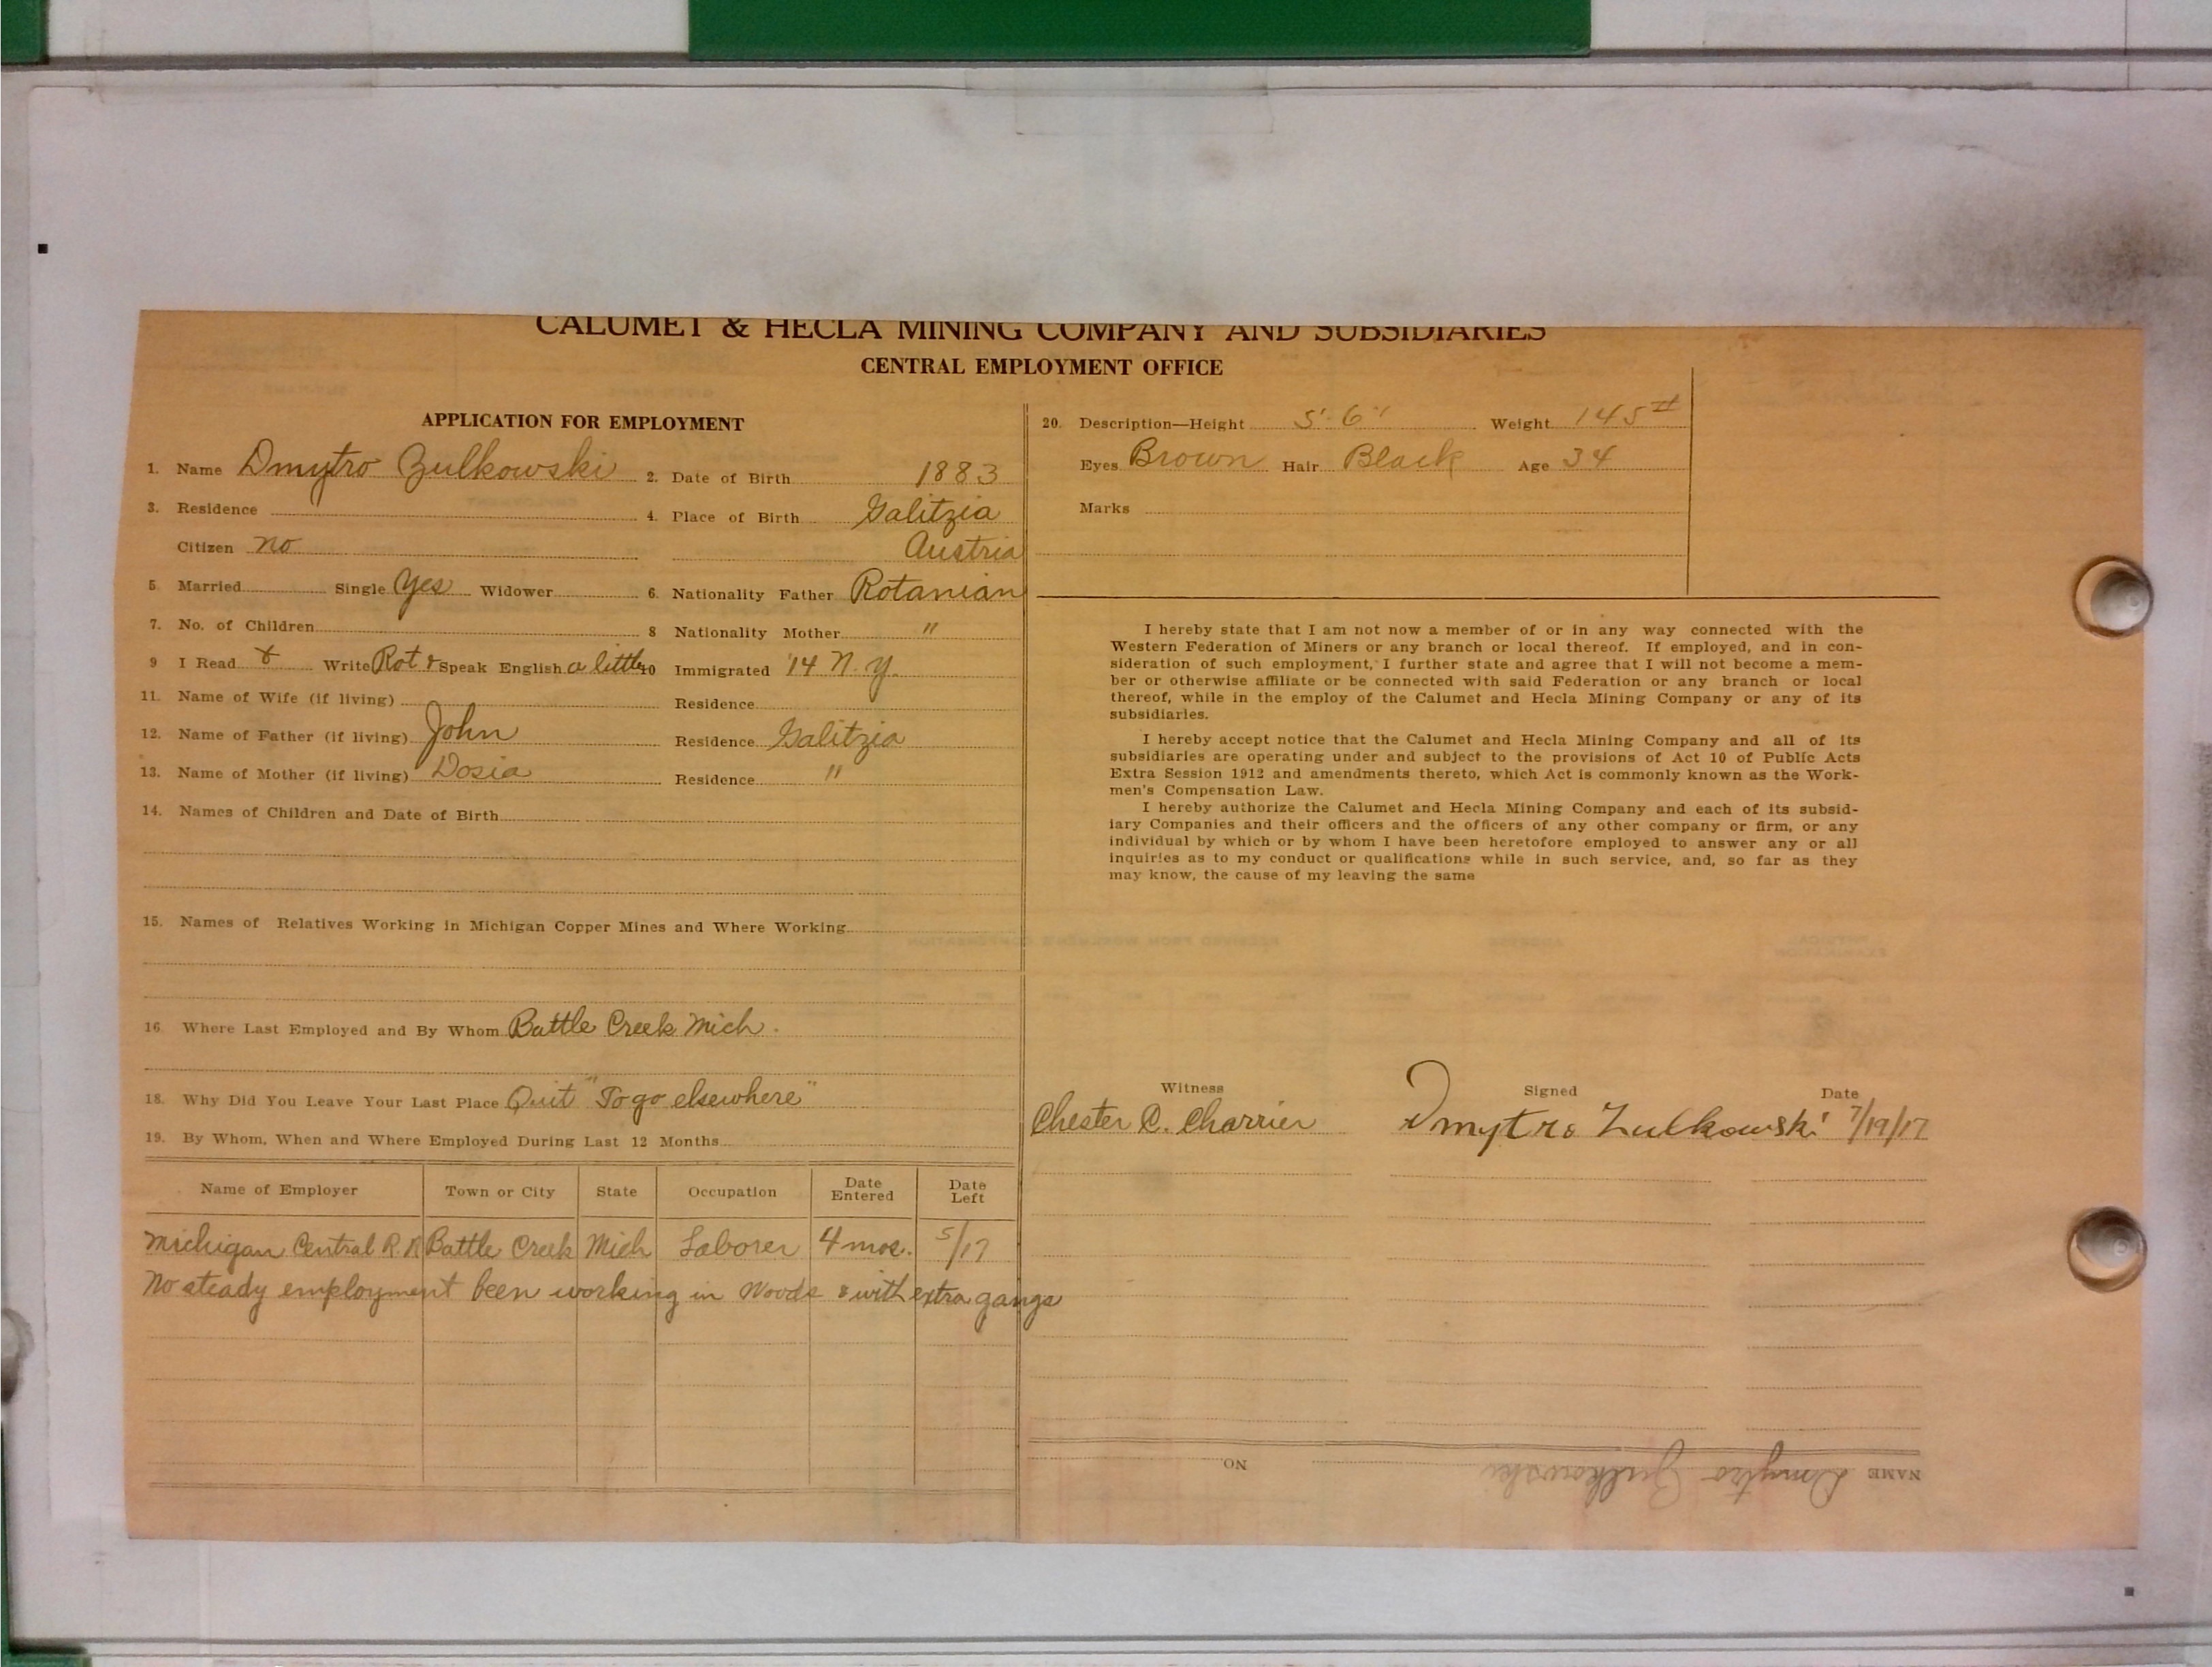 CALUMET & HECLA MINING COMPANY AND SUBSIDIARIES
CENTRAL EMPLOYMENT OFFICE
APPLICATION FOR EMPLOYMENT
1. Name Dmytro Zulkowski 2. Date of Birth 1883
3. Residence 4. Place of Birth Galitzia
Citizen no Austria
5 Married Single Yes Widower 6. Nationality Father Rotanian
7. No. of Children 8 Nationality Mother "
9 I Read & Write Rot & Speak English a little 10 Immigrated '14 N.Y.
11. Name of Wife (if living) Residence
12. Name of Father (if living) John Residence Galitzia
13. Name of Mother (if living) Dosia Residence "
14. Names of Children and Date of Birth
15. Names of Relatives Working in Michigan Copper Mines and Where Working
16. Where Last Employed and By Whom Battle Creek Mich.
18. Why Did You Leave Your Last Place Quit "To go elsewhere"
19. By Whom, When and Where Employed During Last 12 Months
Name of Employer Town or City State Occupation Date Entered Date Left
Michigan Central R.R Battle Creek Mich Laborer 4 mos. 5/17
No steady employment been working in Woods & with extra gangs
20. Description—Height 5' 6" Weight 145#
Eyes Brown Hair Black Age 34
Marks
I hereby state that I am not now a member of or in any way connected with the
Western Federation of Miners or any branch or local thereof. If employed, and in con-
sideration of such employment, I further state and agree that I will not become a mem-
ber or otherwise affiliate or be connected with said Federation or any branch or local
thereof, while in the employ of the Calumet and Hecla Mining Company or any of its
subsidiaries.
I hereby accept notice that the Calumet and Hecla Mining Company and all of its
subsidiaries are operating under and subject to the provisions of Act 10 of Public Acts
Extra Session 1912 and amendments thereto, which Act is commonly known as the Work-
men's Compensation Law.
I hereby authorize the Calumet and Hecla Mining Company and each of its subsid-
iary Companies and their officers and the officers of any other company or firm, or any
individual by which or by whom I have been heretofore employed to answer any or all
inquiries as to my conduct or qualifications while in such service, and, so far as they
may know, the cause of my leaving the same
Witness Signed Date
Chester C. Charrier Dmytro Zulkowski 7/19/17
NAME Dmytro Zulkowski NO.